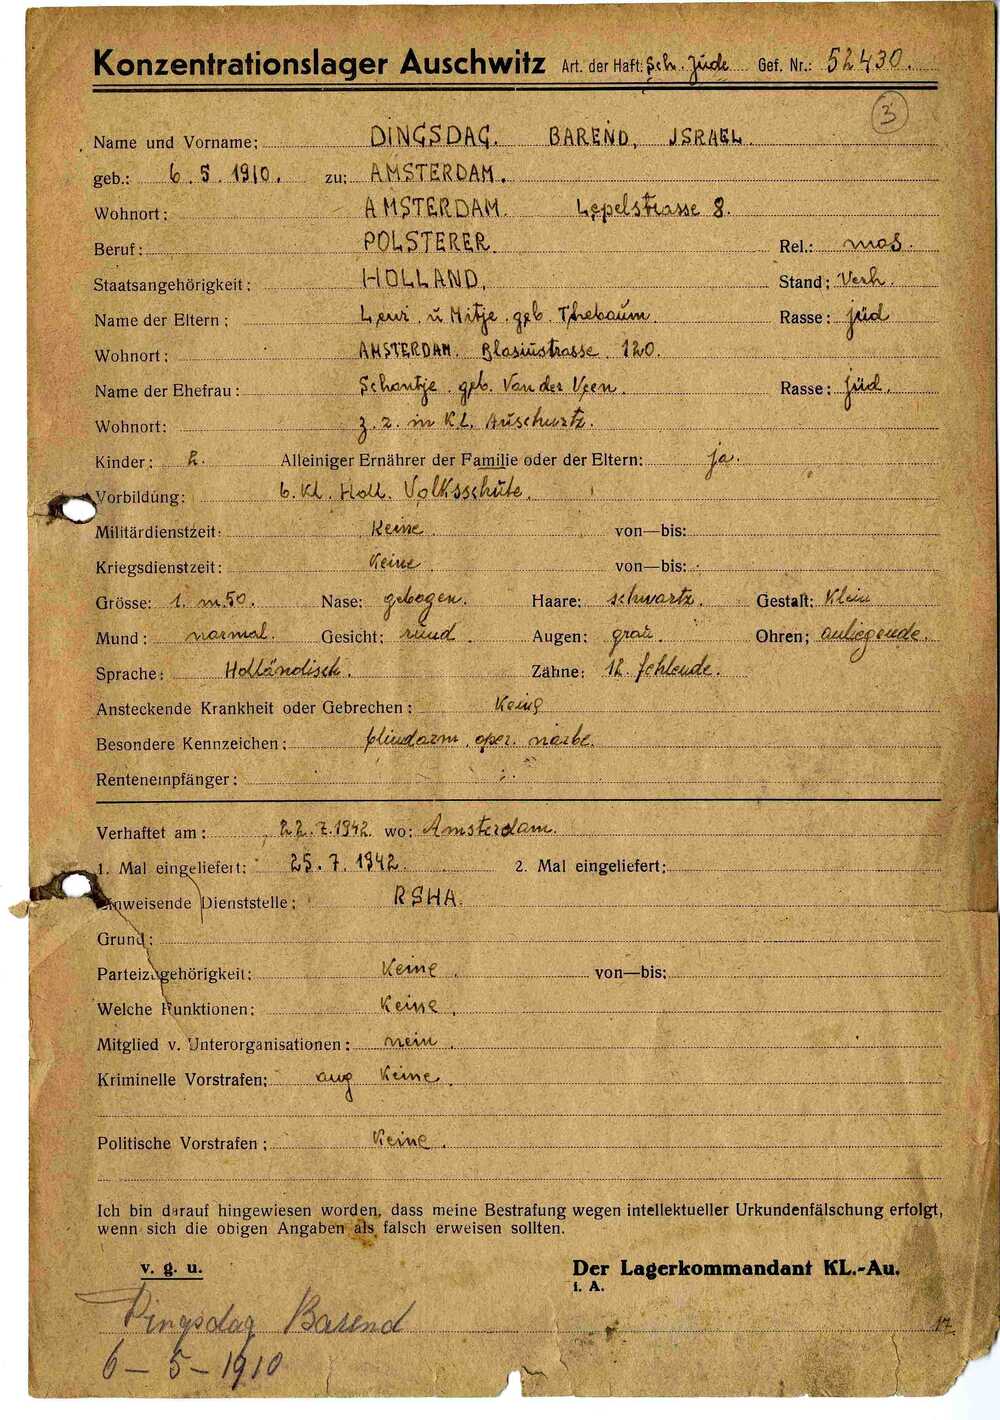 Konzentrationslager Auschwitz Art. der Haft: Sch. Jude Gef. Nr.: 52430.
3
Name und Vorname: DINGSDAG. BAREND, JSRAEL.
geb.: 6. 5. 1910. zu: AMSTERDAM.
Wohnort: AMSTERDAM. Lepelstrasse 8.
Beruf: POLSTERER. Rel.: mos.
Staatsangehörigkeit: HOLLAND. Stand: Verh.
Name der Eltern: Lewi. u Mitje. geb. Thebaum. Rasse: jüd
Wohnort: AMSTERDAM. Blasiusstrasse. 120.
Name der Ehefrau: Schontje. geb. Van der Veen. Rasse: jüd.
Wohnort: z. z. in K.L. Auschwitz.
Kinder: 2. Alleiniger Ernährer der Familie oder der Eltern: ja.
Vorbildung: 6. Kl. Holl. Volksschule.
Militärdienstzeit: Keine von—bis:
Kriegsdienstzeit: Keine von—bis:
Grösse: 1. m. 50. Nase: gebogen. Haare: schwartz. Gestalt: Klein
Mund: normal. Gesicht: rund. Augen: grau. Ohren: anliegende.
Sprache: Holländisch. Zähne: 12. fehlende.
Ansteckende Krankheit oder Gebrechen: Keine
Besondere Kennzeichen: blindarm. oper. narbe.
Rentenempfänger:
Verhaftet am: 22. 7. 1942. wo: Amsterdam.
1. Mal eingeliefert: 25. 7. 1942. 2. Mal eingeliefert:
einweisende Dienststelle: RSHA.
Grund:
Parteizugehörigkeit: Keine. von—bis:
Welche Funktionen: Keine.
Mitglied v. Unterorganisationen: nein.
Kriminelle Vorstrafen: ang Keine.
Politische Vorstrafen: Keine.
Ich bin darauf hingewiesen worden, dass meine Bestrafung wegen intellektueller Urkundenfälschung erfolgt,
wenn sich die obigen Angaben als falsch erweisen sollten.
v. g. u. Der Lagerkommandant KL.-Au.
i. A.
Dingsdag Barend
6 - 5 - 1910